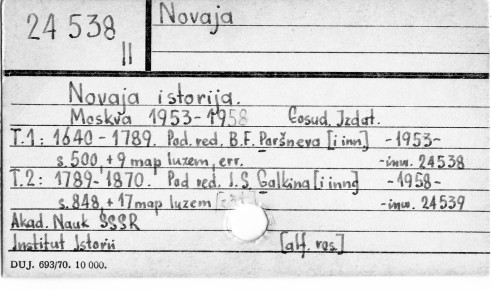 24 538
II
Novaja
Novaja istorija.
Moskva 1953-1958 Gosud. Izdat.
T.1: 1640-1789. Pod. red. B.F. Paršneva [i inn] -1953-
s. 500, + 9 map luzem, err. -inw. 24538
T.2: 1789-1870. Pod red. I.S. Galkina [i inn] -1958-
s. 848, + 17 map luzem -inw. 24539
Akad. Nauk SSSR
Institut Istorii [alf. ros.]
DUJ. 693/70. 10 000.